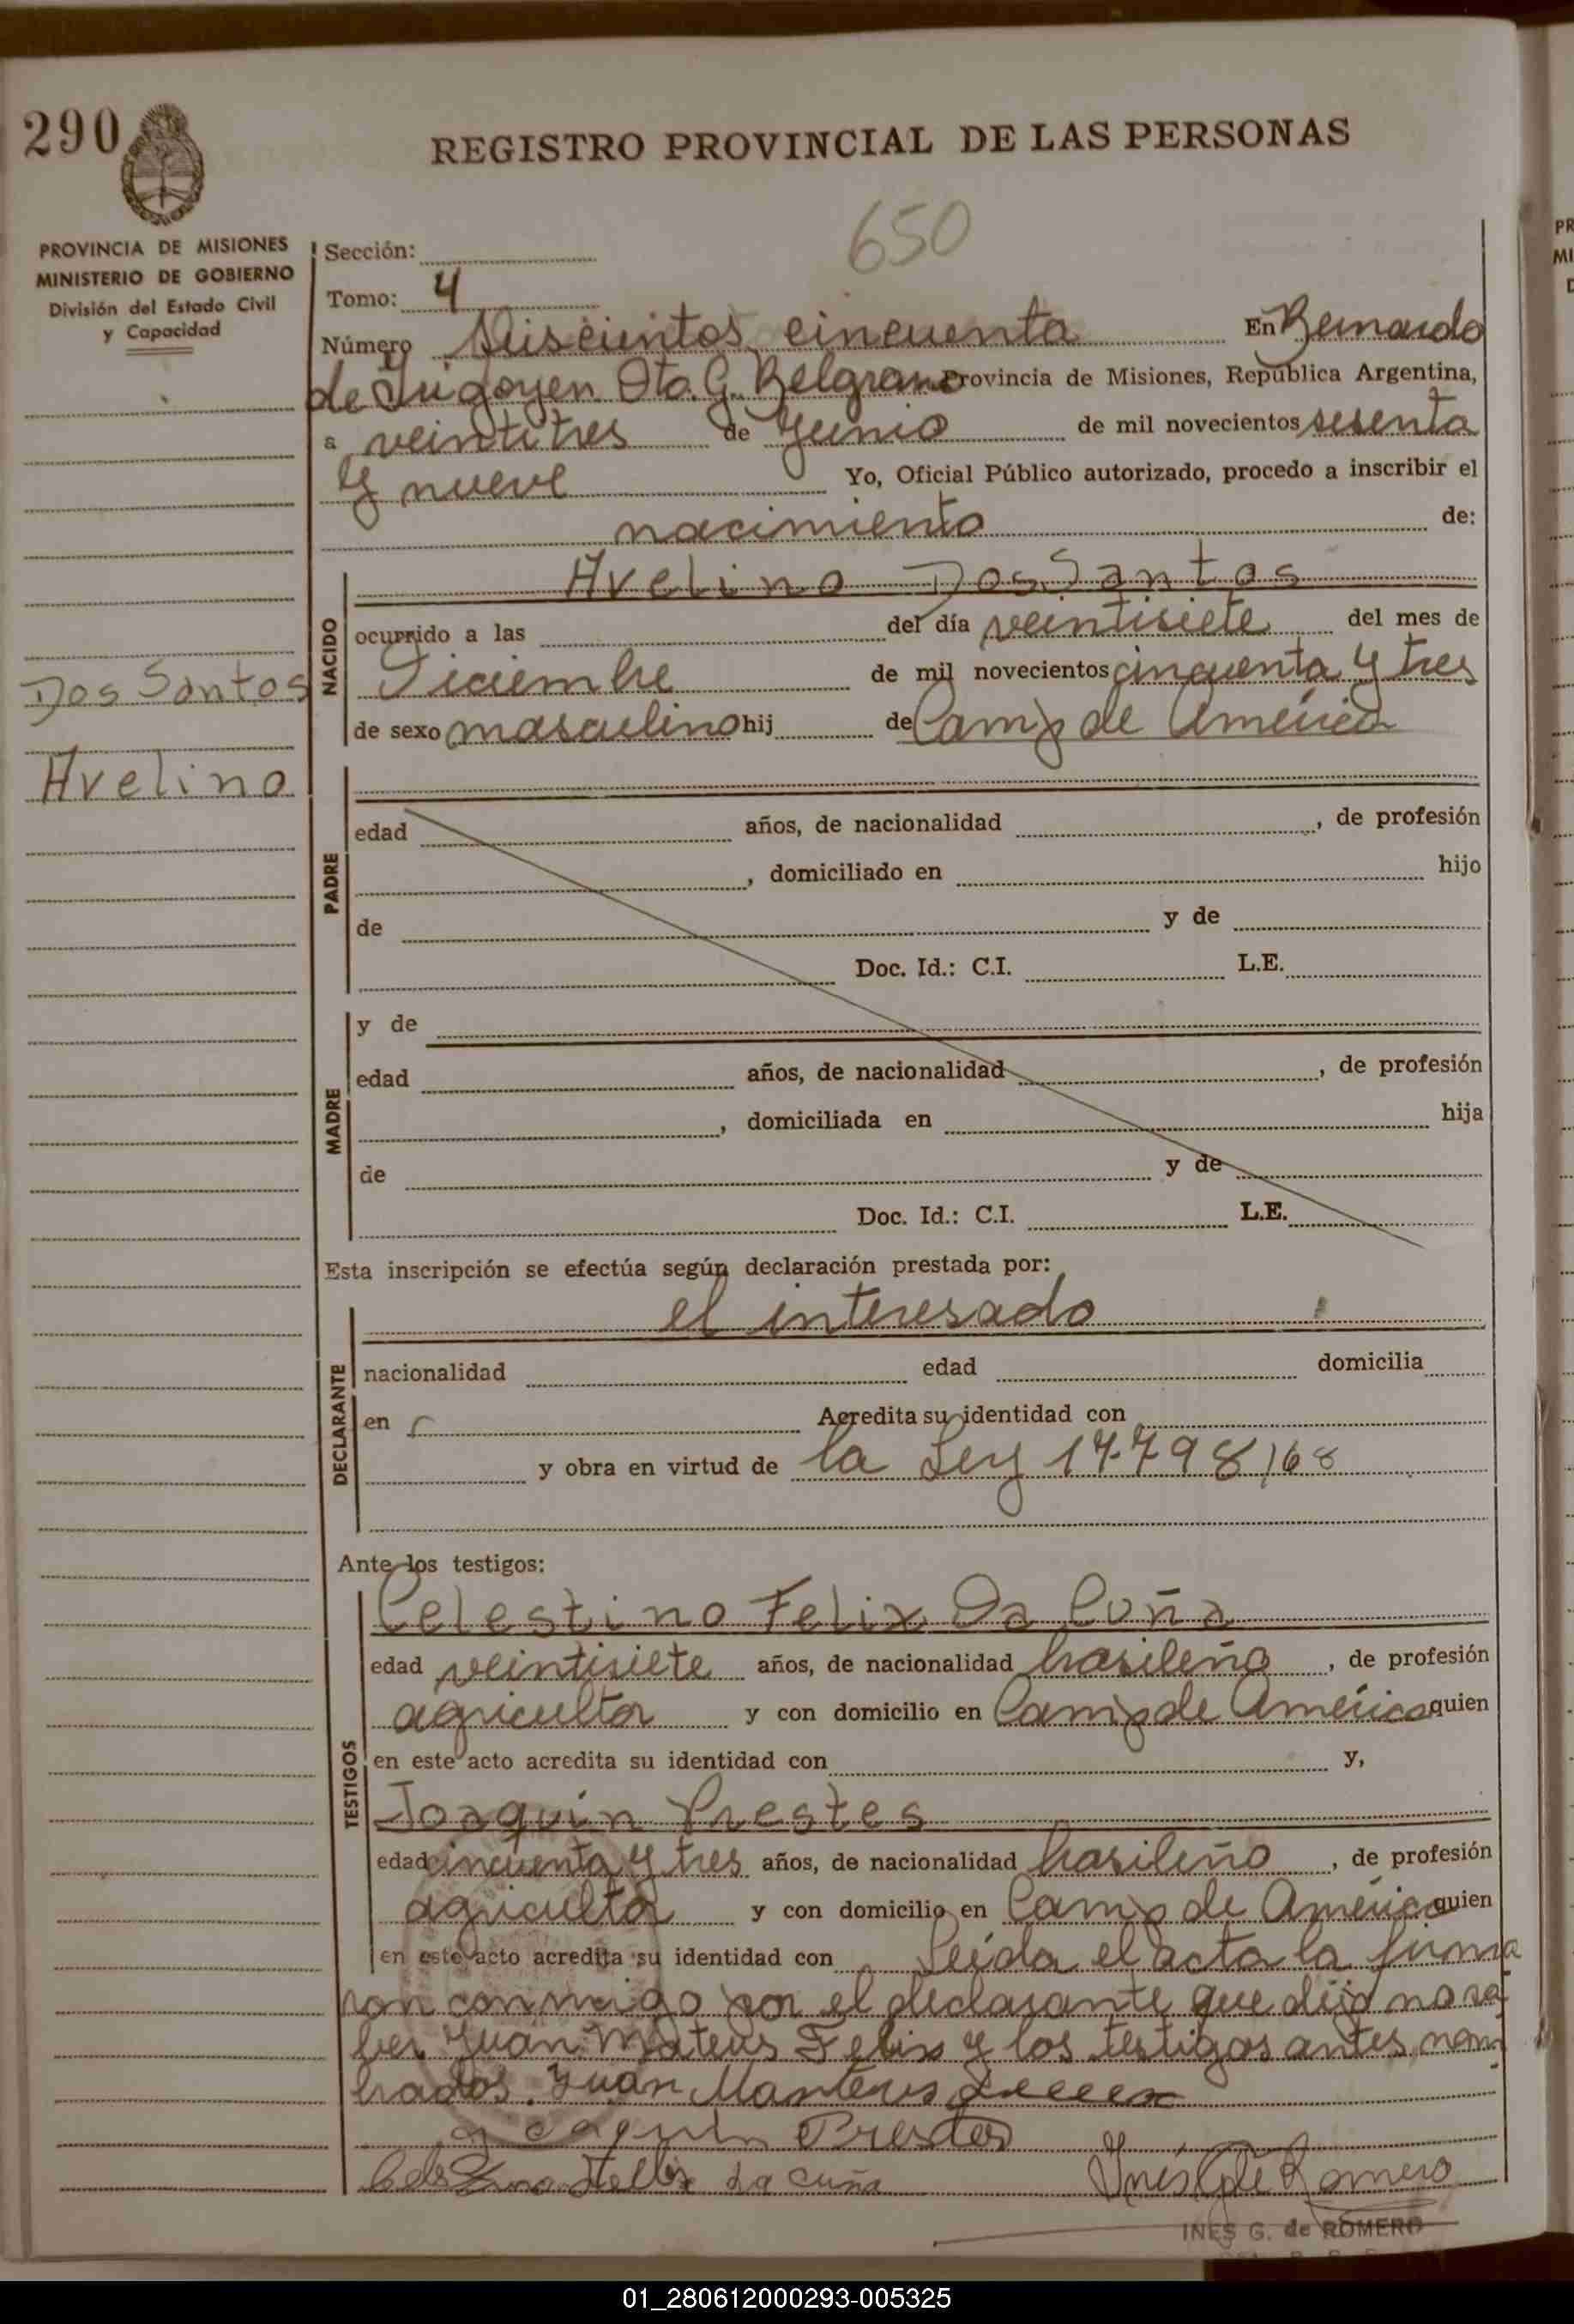 290
REGISTRO PROVINCIAL DE LAS PERSONAS
650
PROVINCIA DE MISIONES
MINISTERIO DE GOBIERNO
División del Estado Civil
y Capacidad
Sección:
Tomo: 4
Número Seiscientos cincuenta En Bernardo
de Irigoyen Dto. G. Belgrano Provincia de Misiones, República Argentina,
a veintitres de Junio de mil novecientos sesenta
y nueve Yo, Oficial Público autorizado, procedo a inscribir el
nacimiento de:
Avelino Dos Santos
NACIDO
ocurrido a las del día veintisiete del mes de
Diciembre de mil novecientos cincuenta y tres
de sexo masculino hij de Camp de América
Dos Santos
Avelino
PADRE
edad años, de nacionalidad , de profesión
, domiciliado en hijo
de y de
Doc. Id.: C.I. L.E.
MADRE
y de
edad años, de nacionalidad , de profesión
, domiciliada en hija
de y de
Doc. Id.: C.I. L.E.
Esta inscripción se efectúa según declaración prestada por:
el interesado
DECLARANTE
nacionalidad edad domicilia
en Acredita su identidad con
y obra en virtud de la Ley 17798/68
Ante los testigos:
TESTIGOS
Celestino Felix Da Cuña
edad veintisiete años, de nacionalidad brasileña, de profesión
agricultor y con domicilio en Camp de América quien
en este acto acredita su identidad con y,
Joaquin Prestes
edad cincuenta y tres años, de nacionalidad brasileño, de profesión
agricultor y con domicilio en Camp de América quien
en este acto acredita su identidad con Leída el acta la firma
ron conmigo por el declarante que dijo no sa
ber Juan Mateus Felix y los testigos antes nom
brados. Juan Manteus
Joaquin Prestes
Celestino Felix da cuña Inés G de Romero
INES G. de ROMERO
01_280612000293-005325